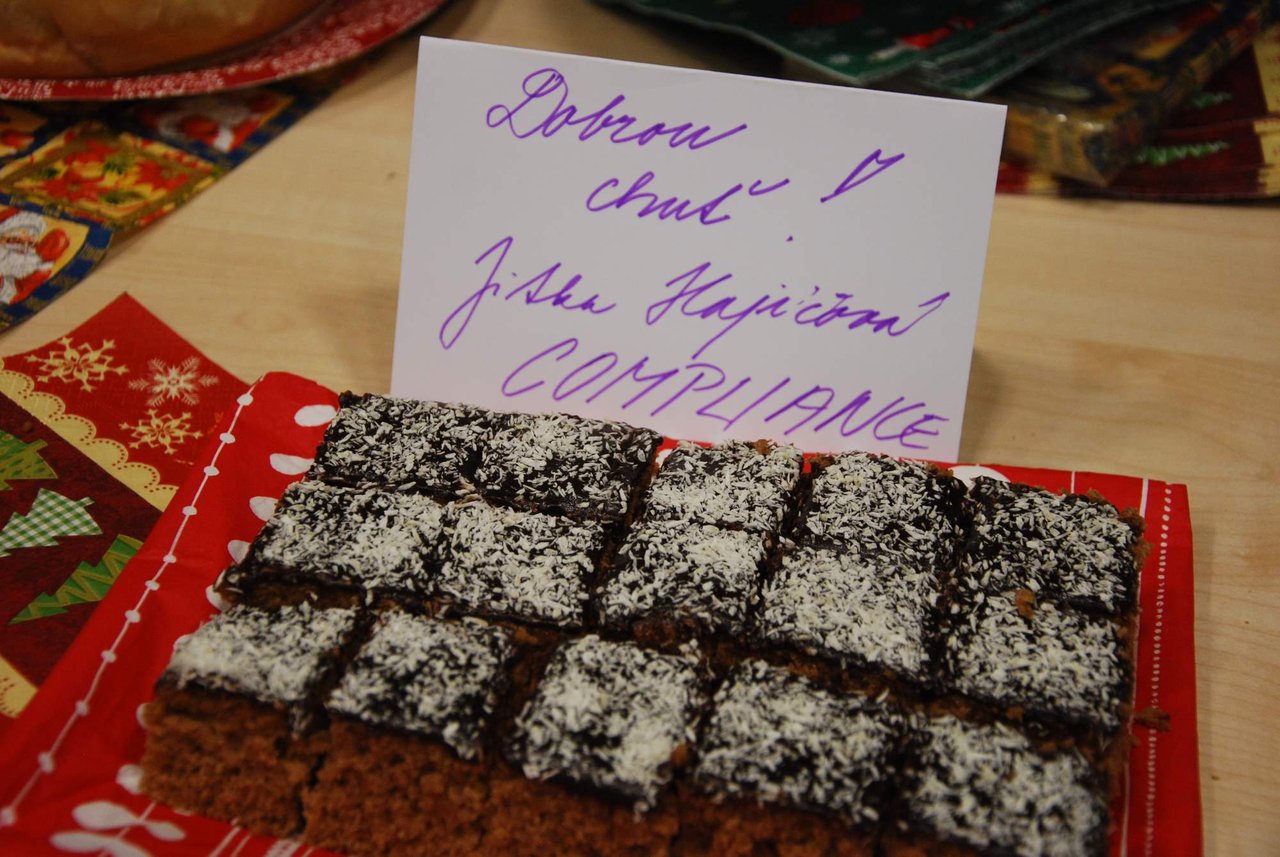 Dobrou
chuť!
Jitka Hajíčová
COMPLIANCE